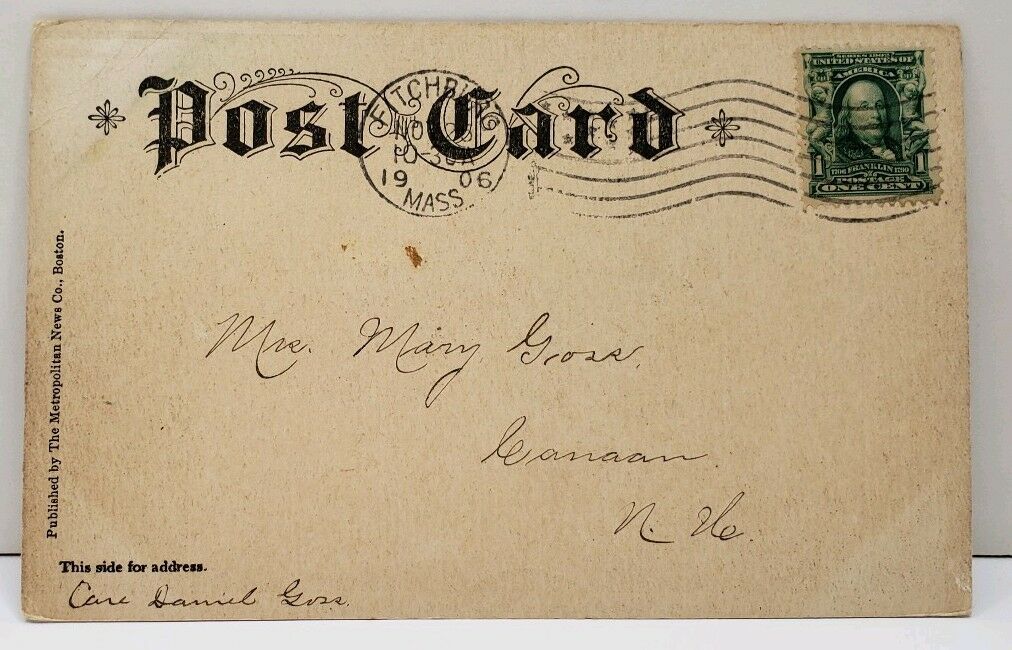 Post Card
FITCHBURG
NO
10-30A
19 06
MASS
SERIES 1902
UNITED STATES OF
AMERICA
1 1
1706 FRANKLIN 1790
POSTAGE
ONE CENT
Published by The Metropolitan News Co., Boston.
Mrs. Mary Goss.
Canaan
N. H.
This side for address.
Care Daniel Goss.